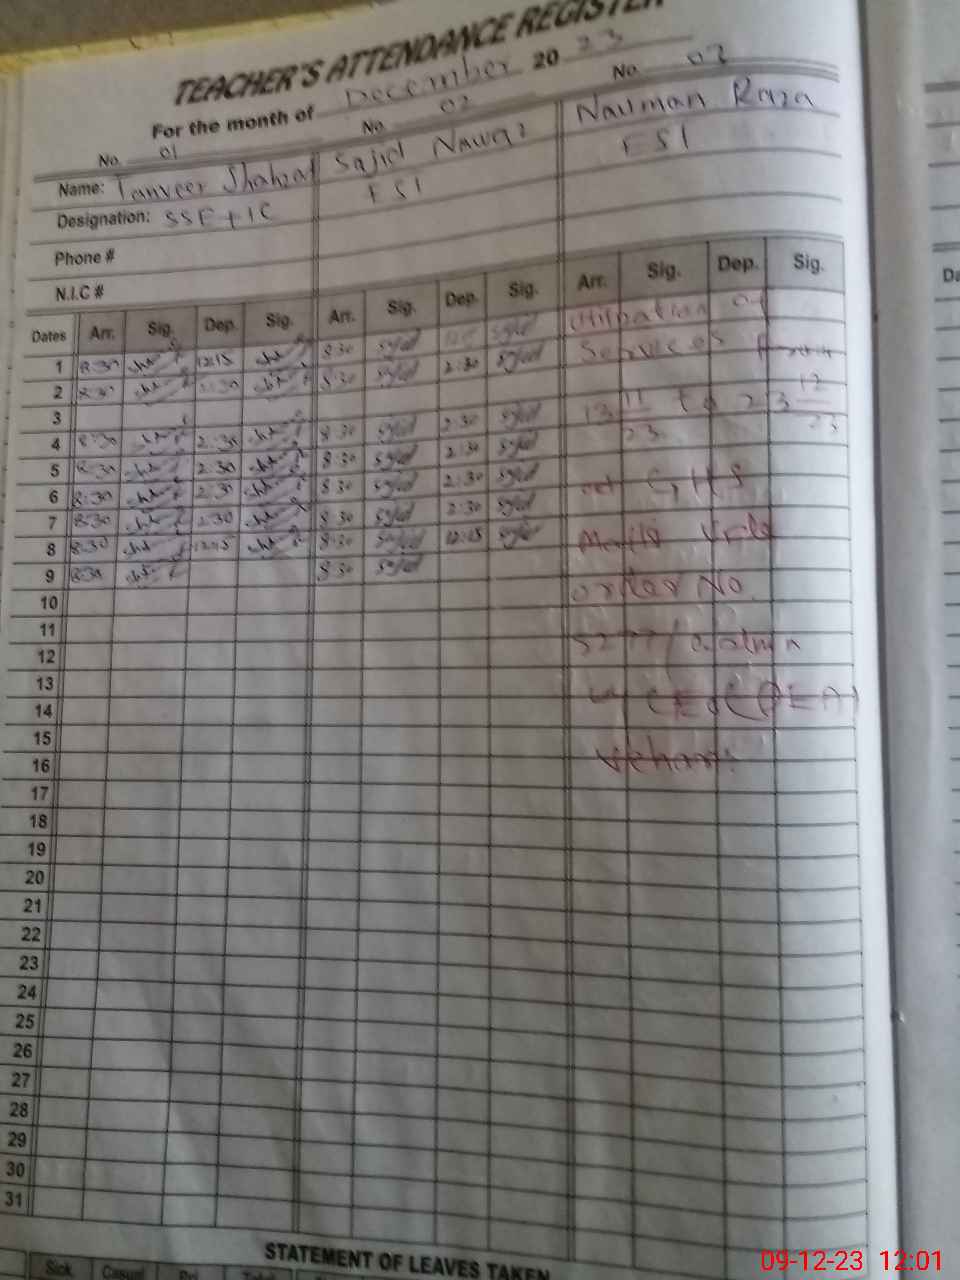 TEACHER'S ATTENDANCE REGISTER
For the month of December 20 23
No. 01 No. 02 No. 03
Name: Tanveer Shahzad Sajid Nawaz Nauman Raza
Designation: SSE + IC ESI ESI
Phone #
N.I.C #
Dates Arr. Sig. Dep. Sig. Arr. Sig. Dep. Sig. Arr. Sig. Dep. Sig.
Utilization of
1 8:30 12:15 8:30 sajid sajid
Services from
2 8:30 2:30 8:30 sajid 2:30 sajid
3
13 11/23 to 23 12/23
4 8:30 2:30 8:30 sajid 2:30 sajid
5 8:30 2:30 8:30 sajid 2:30 sajid
6 8:30 2:30 8:30 sajid 2:30 sajid
at GHS
7 8:30 2:30 8:30 sajid 2:30 sajid
8 8:30 12:15 8:30 sajid 12:15 sajid
9 8:30 8:30 sajid
order No.
10
11
12
13
CEO (DEA)
14
15
Vehari
16
17
18
19
20
21
22
23
24
25
26
27
28
29
30
31
STATEMENT OF LEAVES TAKEN
Sick Casual Total
09-12-23 12:01